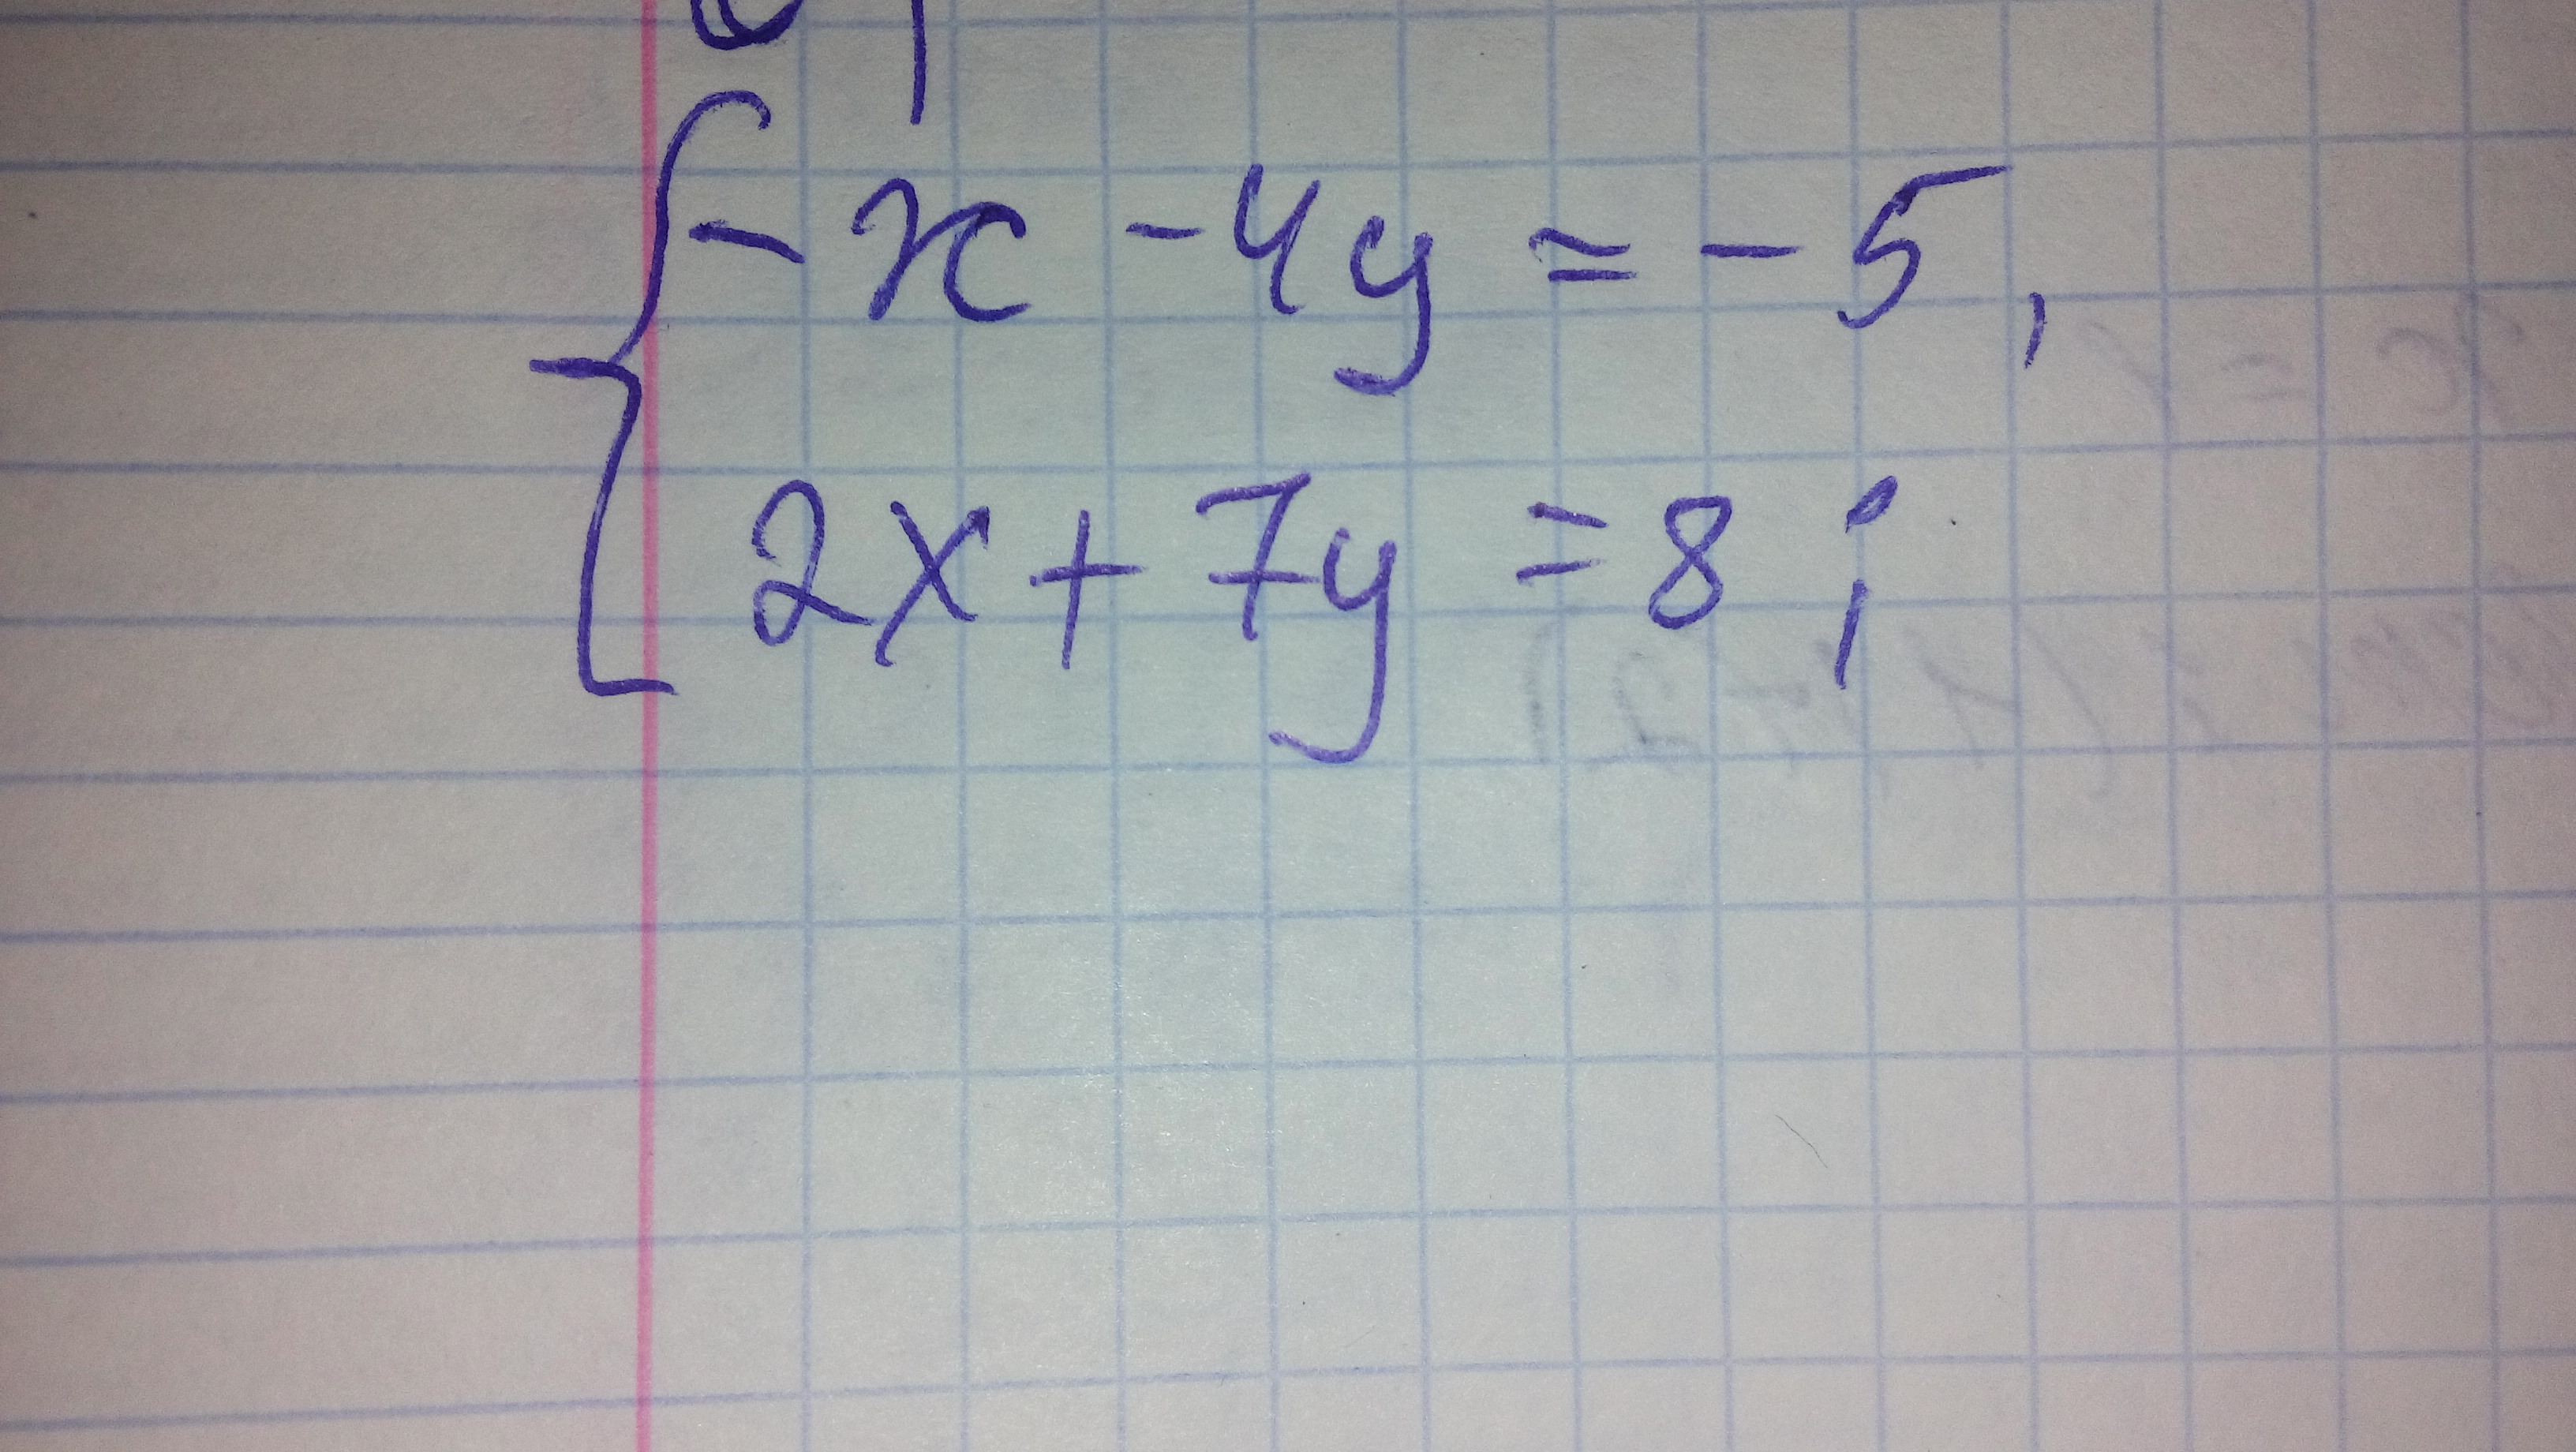 - x - 4y = - 5,
2x + 7y = 8;